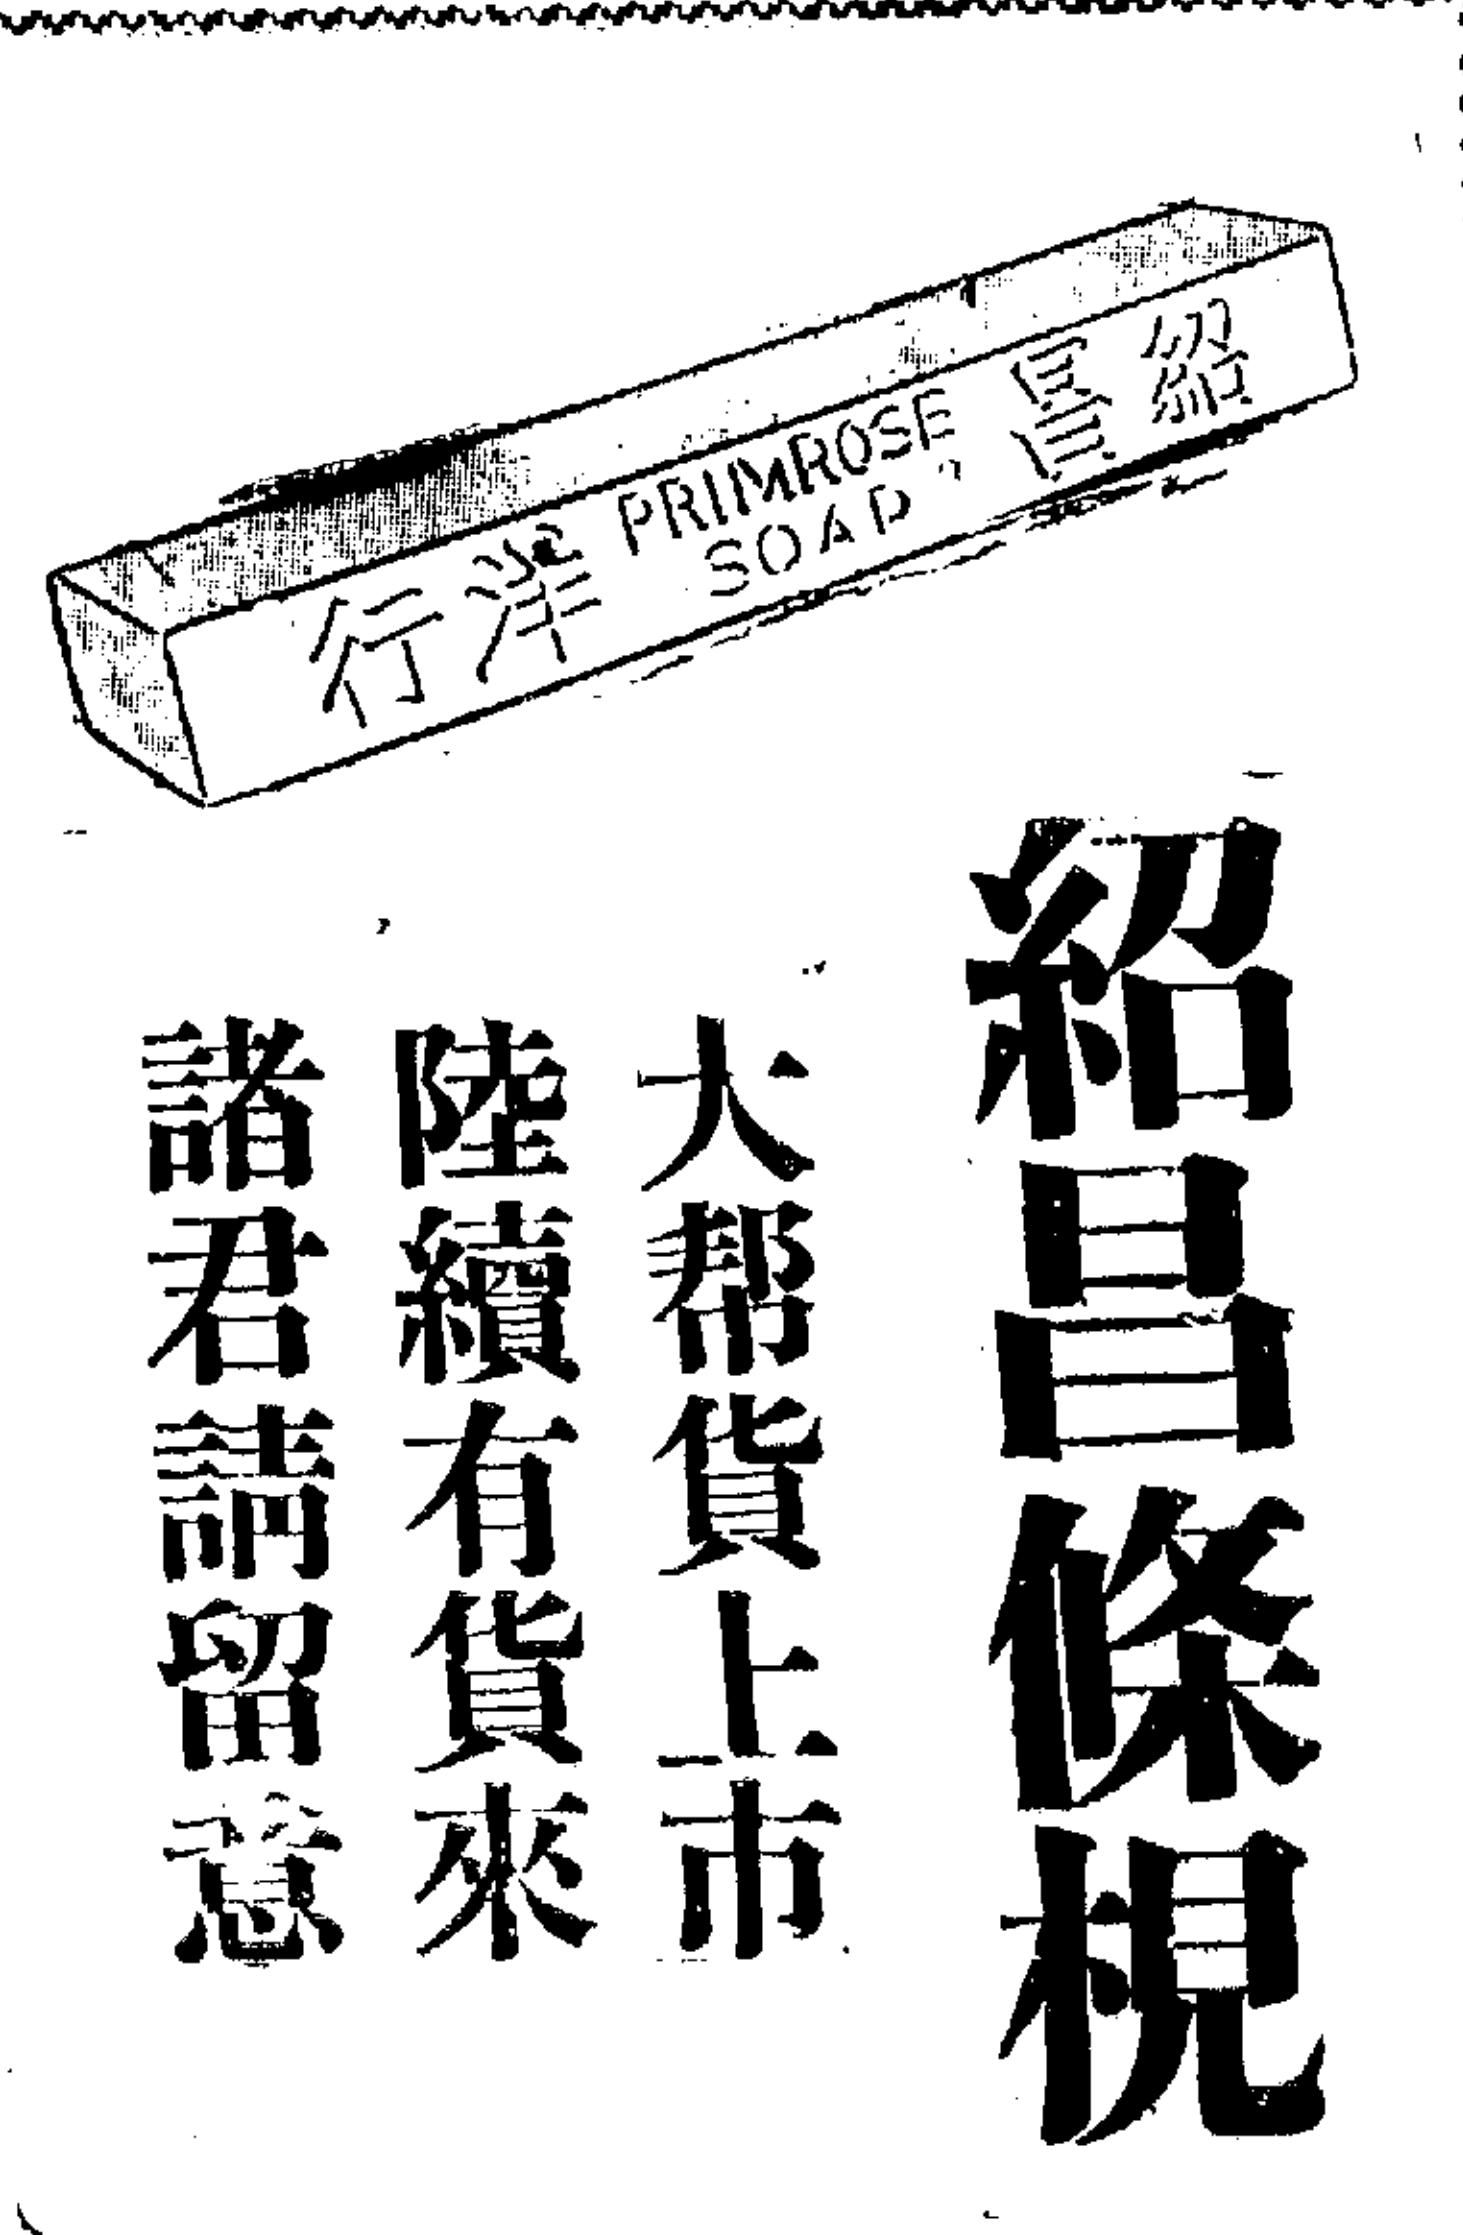 紹昌
PRIMROSE
SOAP
洋行
紹昌條梘
大帮貨上市
陸續有貨來
諸君請留意